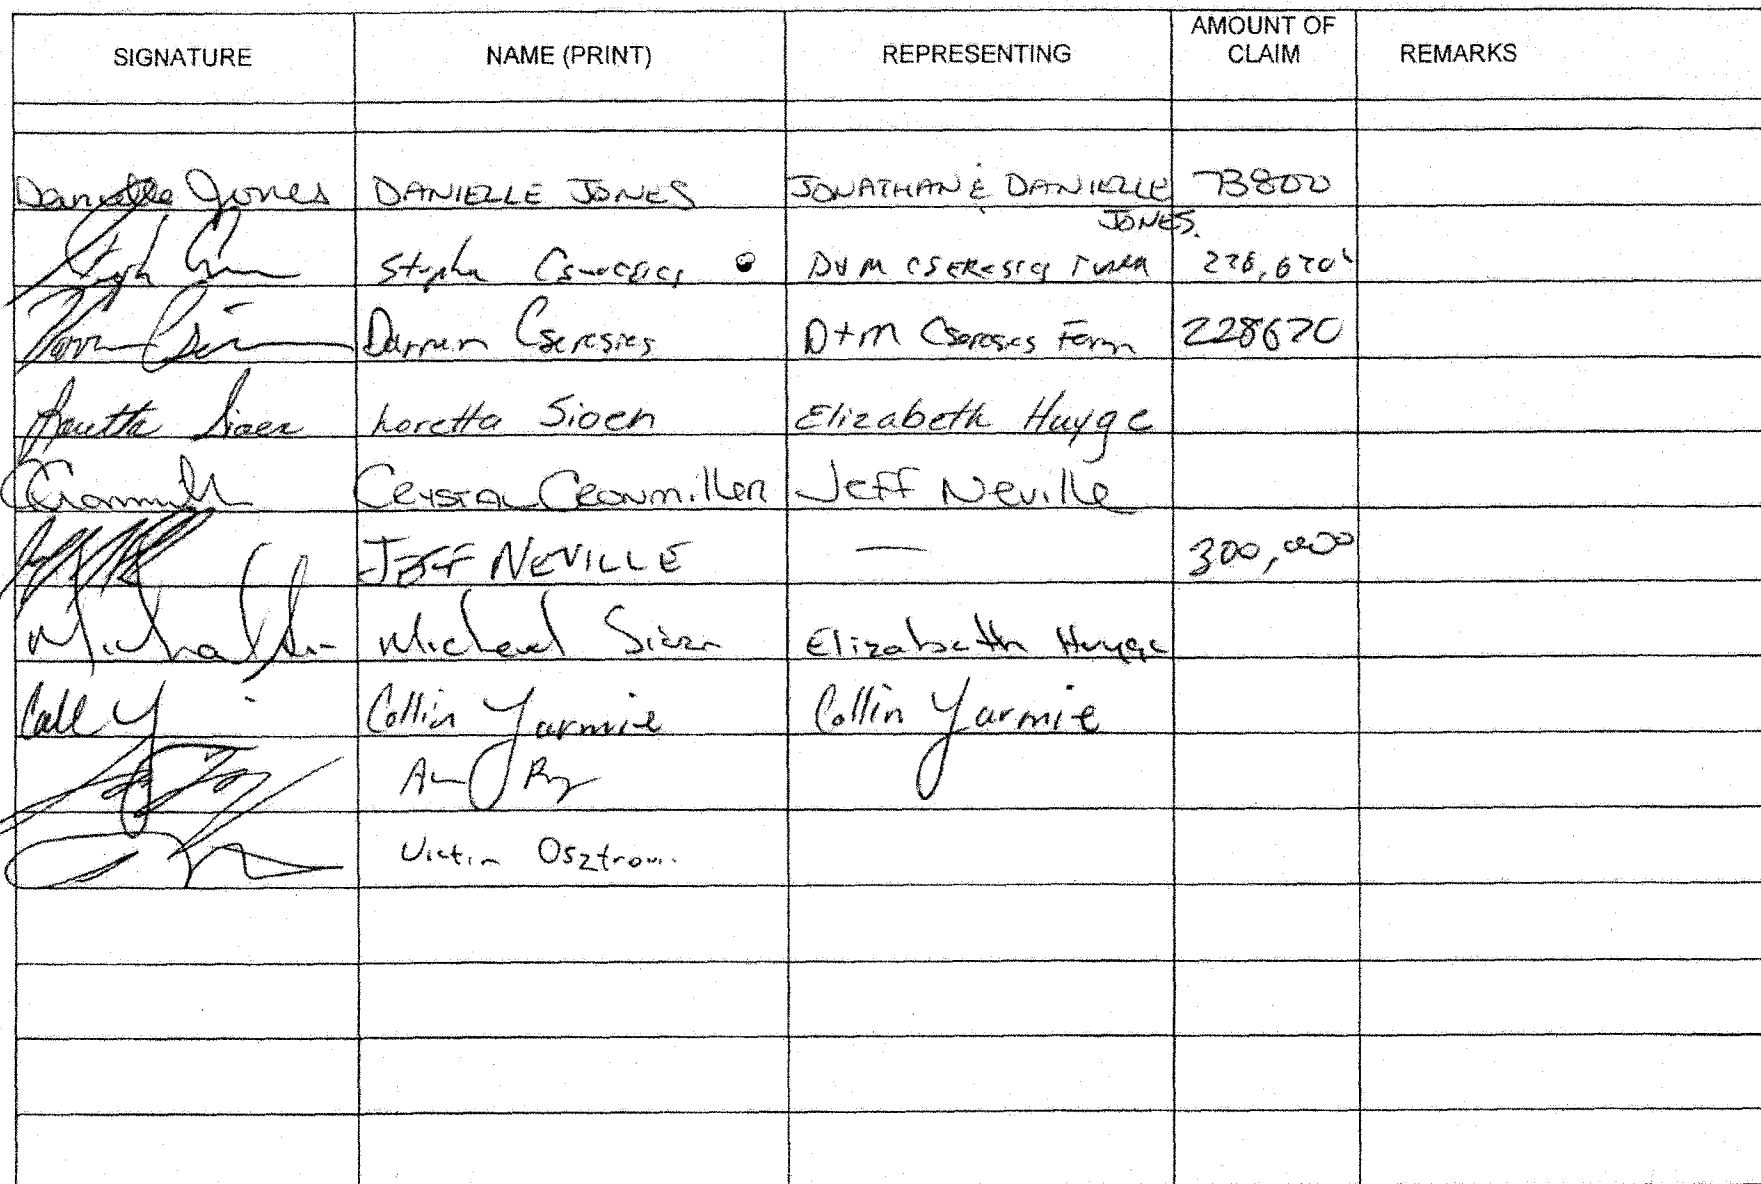 SIGNATURE NAME (PRINT) REPRESENTING AMOUNT OF CLAIM REMARKS
Danielle Jones DANIELLE JONES JONATHAN & DANIELLE JONES. 73800
D&M CSERESIES
Darren Cseresies D+M Cseresies Farm 228670
Loretta Sioen Loretta Sioen Elizabeth Huyge
CRYSTAL CRONMILLER Jeff Neville
JEFF NEVILLE — 300,000
Michael Sioen Elizabeth Huyge
Collin Yarmie Collin Yarmie